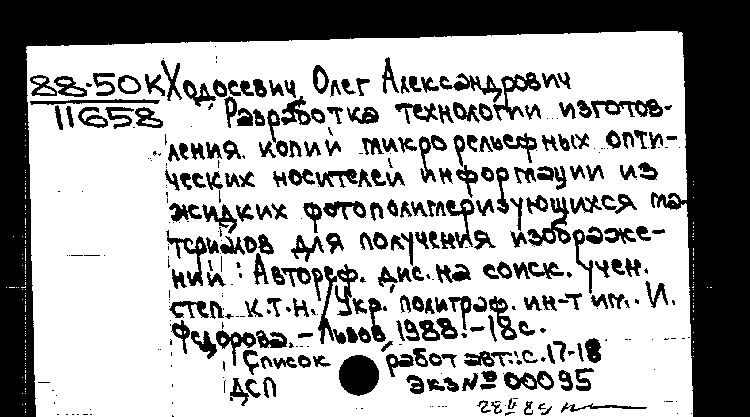 88-50К Ходосевич, Олег Александрович
11658 Разработка технологии изготов-
ления копий микрорельефных опти-
ческих носителей информации из
жидких фотополимеризующихся ма-
териалов для получения изображе-
ний : Автореф. дис. на соиск. учен.
степ. к.т.н. / Укр. полиграф. ин-т им. И.
Федорова. - Львов, 1988. - 18с.
Список работ авт.: с. 17-18
ДСП Экз № 00095